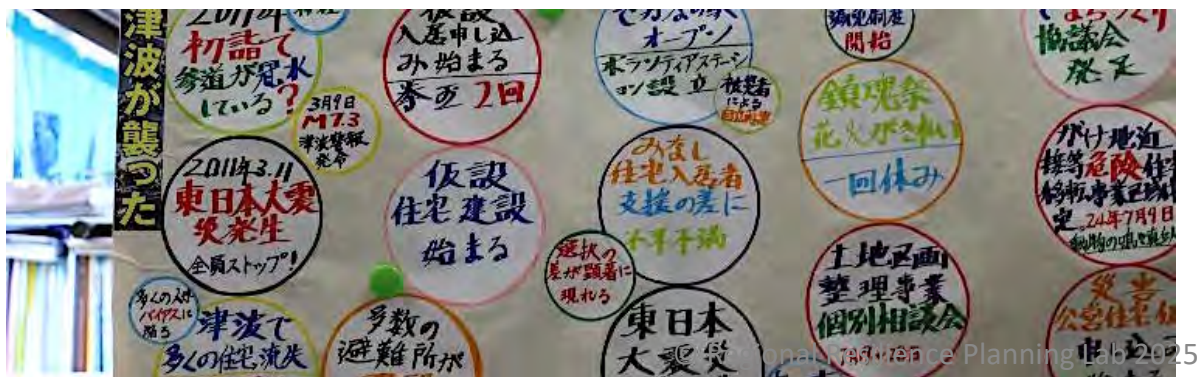 津波が襲った
2011年
初詣で
参道が冠水
している?
3月9日
M7.3
津波警報
発令
2011年3.11
東日本大震
災発生
全員ストップ!
多くの人が
バイアスに
陥る
津波で
多くの住宅流失
仮設
入居申し込
み始まる
参画2回
仮設
住宅建設
始まる
多数の
避難所が
オープン
ボランティアステーシ
ョン設立
被災者
による
みなし
住宅入居者
支援の差に
不平不満
選択の
差が顕著に
現れる
東日本
大震災
開始
鎮魂祭
花火がき払い
一回休み
土地区画
整理事業
個別相談会
まちづくり
協議会
発足
がけ地近
接等危険住宅
移転事業区域
定。24年7月9日
災害
公営住宅
© Regional Resilience Planning Lab 2025